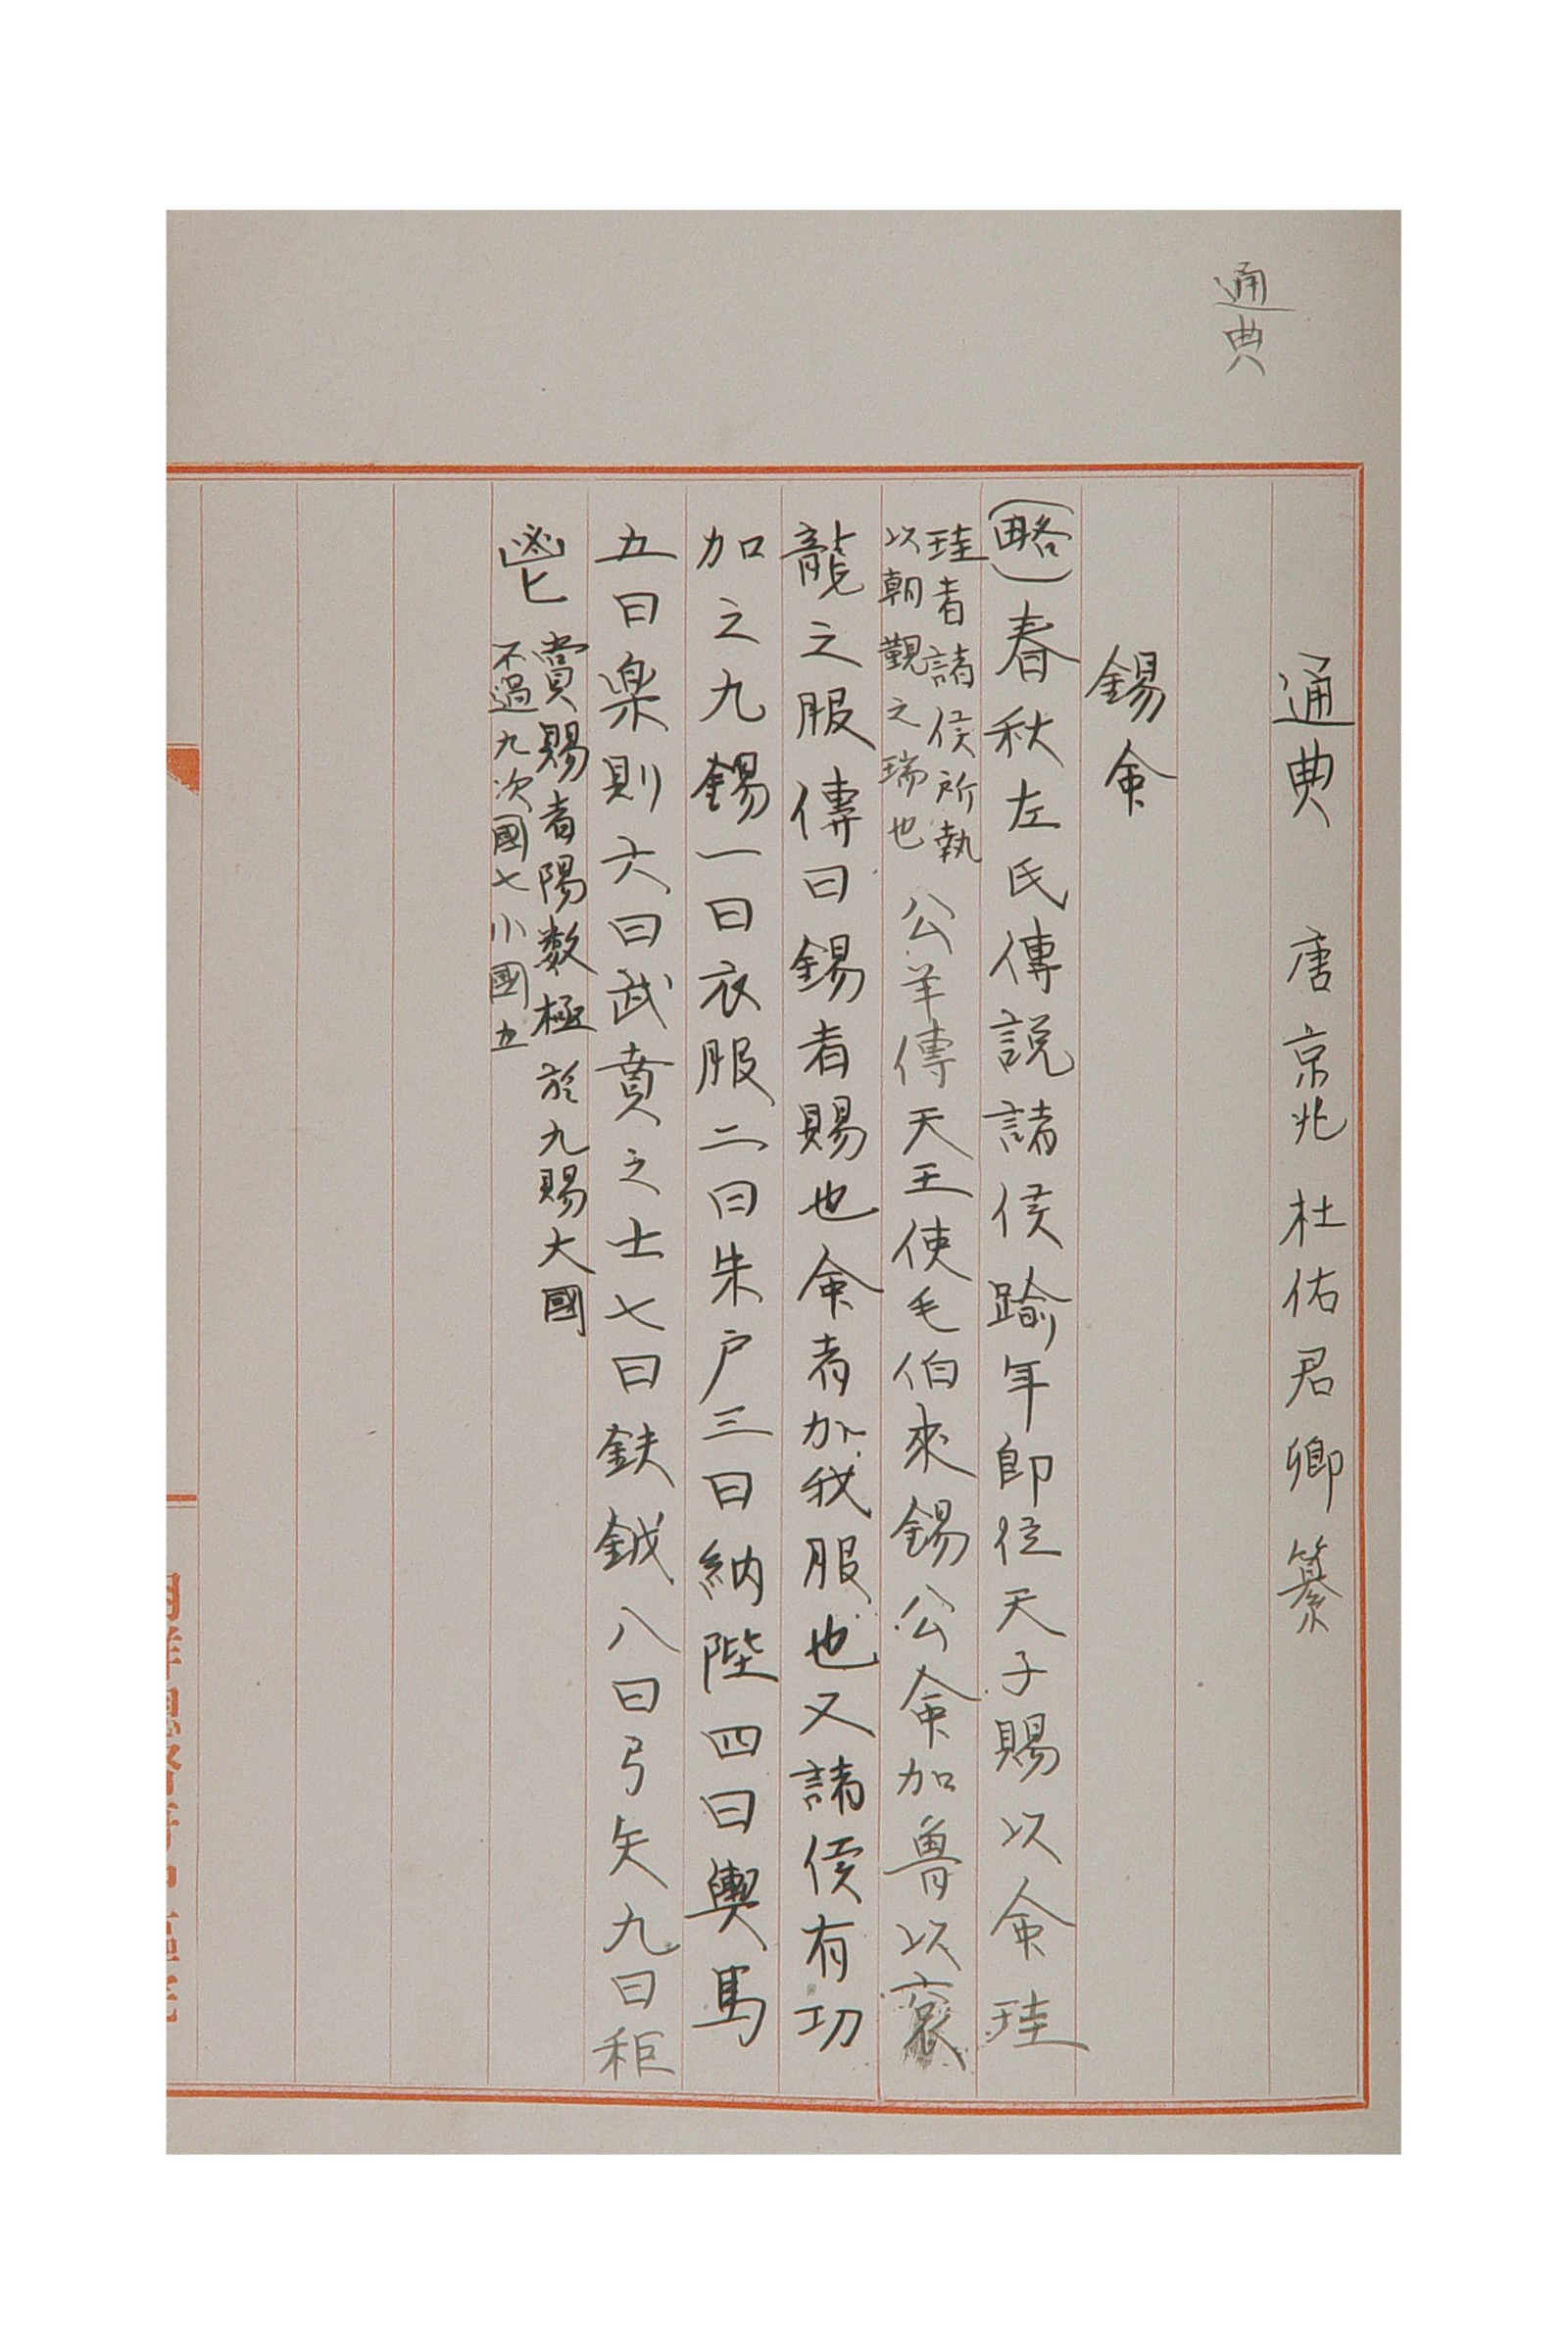 通典
通典　唐京兆杜佑君卿纂
錫命
（略）春秋左氏傳説諸侯踰年即位天子賜以命珪
珪者諸侯所執
以朝覲之瑞也
公羊傳天王使毛伯來錫公命加魯以袞
龍之服傳曰錫者賜也命者加我服也又諸侯有功
加之九錫一曰衣服二曰朱户三曰納陛四曰輿馬
五曰楽則六曰武賁之士七曰鈇鉞八曰弓矢九曰秬
鬯
賞賜者陽数極於九賜大國
不過九次國七小國五